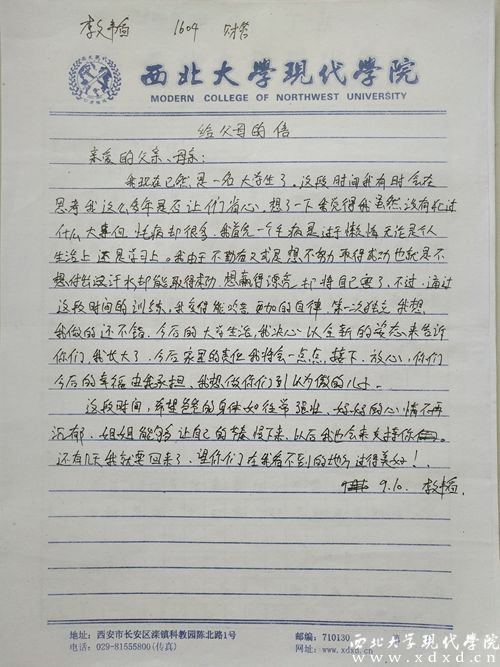 1604 财务
西北大學現代學院
MODERN COLLEGE OF NORTHWEST UNIVERSITY
给父母的信
亲爱的父亲、母亲:
我现在已然是一名大学生了。这段时间我有时会在
思考我这么多年是否让你们省心。想了一下我觉得我虽然没有犯过
什么大事但毛病却很多,我首先一个毛病是过于懒惰无论是个人
生活上还是学习上。我由于不勤奋又或是想不努力取得成功也就是不
想付出汗水却能取得成功,想赢得漂亮却将自己。不过,通过
这段时间的训练,我变得能吃苦,更加的自律。第一次独立,我想
我做的还不错。今后的大学生活,我决心以全新的姿态来告诉
你们,我长大了,今后家里的责任我将会一点点接下,放心,你们
今后的幸福由我承担,我想做你们引以为傲的儿子。
这段时间,希望爸爸的身体如往常强壮,妈妈的心情不再
沉郁,姐姐能够让自己的节奏慢下来,以后我也会来支撑你。
还有几天我就要回来了,望你们在我看不到的地方过得美好!
9.10.
地址:西安市长安区滦镇科教园陈北路1号 邮编:710130
电话:029-81555800(传真) 网址:www.xdxd.cn
西北大学现代学院
www.xdxd.cn